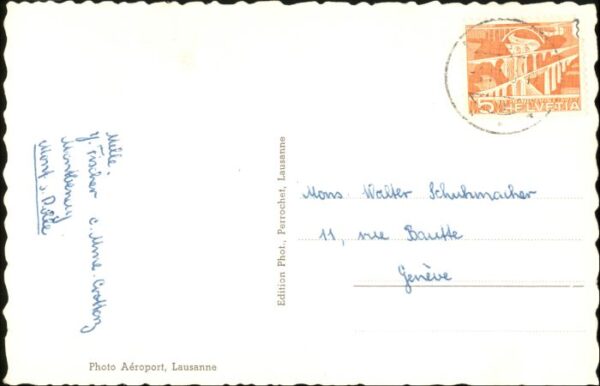 Mlle.
Y. Fischer c. Mme.
Mont s. Rolle
Edition Phot., Perrochet, Lausanne
5 HELVETIA
Mons Walter Schuhmacher
11, rue Bautte
Genève
Photo Aéroport, Lausanne